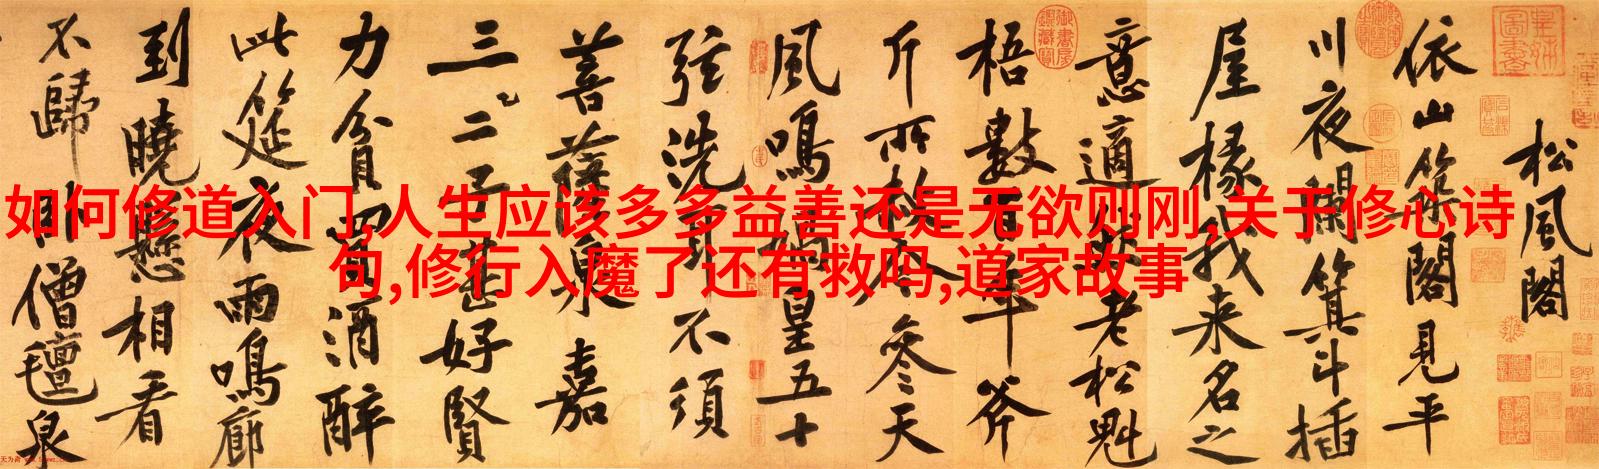 如何修道入门,人生应该多多益善还是无欲则刚,关于修心诗
句,修行入魔了还有救吗,道家故事
松風閣
依山築閣見平
川夜闌箕斗插
屋椽我来名之
意適然老松魁
梧數百年斧
斤所赦今參天
風鳴媧皇五十
弦洗耳不須
菩薩泉嘉
三二子甚好賢
力貧買酒醉
此筵夜雨鳴廊
到曉懸相看
不歸卧僧氈泉